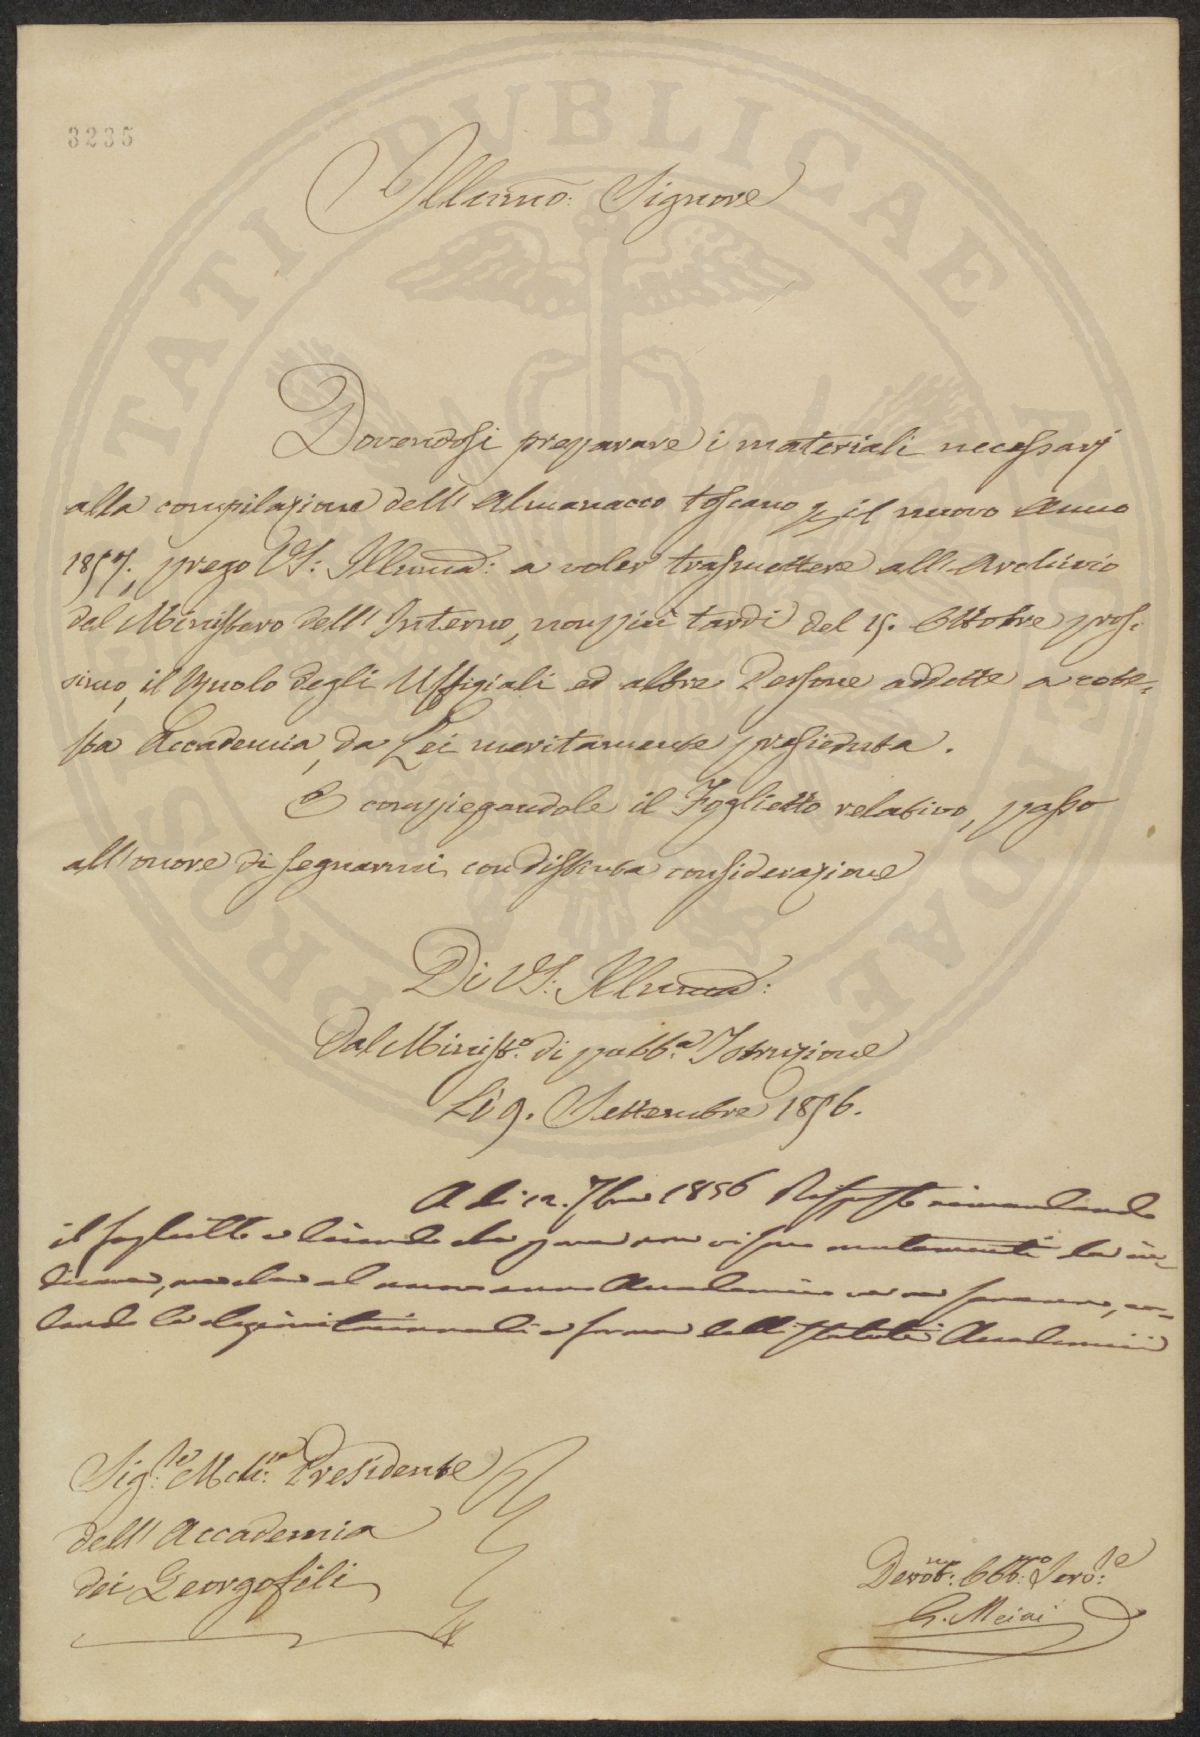 3235
Illmo: Signore
Dovendosi preparare i materiali necessarj
alla compilazione dell'Almanacco toscano p il nuovo Anno
1857., prego VS: Illma: a voler trasmettere all'Archivio
dal Ministero dell'Interno, non più tardi del 15. Ottobre pros-
simo, il Ruolo degli Uffiziali ed altre Persone addette a code-
sta Accademia, da Lei meritamente presieduta.
E compiegandole il Foglietto relativo, passo
all'onore di segnarmi con distinta considerazione
Di VS: Illma:
Dal Ministo. di pubba. Istruzione
Li 9. Settembre 1856.
A di 12. 7bre 1856 Risposto rimandando
il foglietto e dicendo che
al nuovo anno Accademico
a forma delli Statuti Accademici
Sigre. Presidente
dell'Accademia
dei Georgofili
Devotmo: Obbmo: Servre:
G. Meini
PROSPERITATI PUBLICAE AUGENDAE